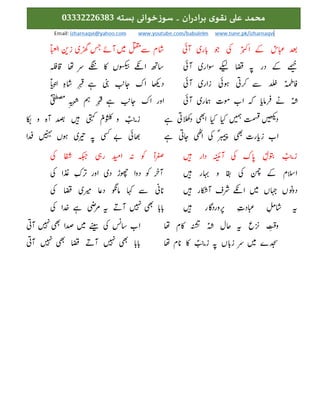 محمد علی نقوی برادران ۔ سوزخوانی بستہ 03332226383
Email: izharnaqvi@yahoo.com www.youtube.com/babulelm www.tune.pk/izharnaqvi
بعد عباسؑ کے اکبرؑ کی جو باری آئی
خیمے کے در پہ قضا لیکے سواری آئی
فاطمہؑ خلد سے کرتی ہوئی زاری آئی
شہؑ نے فرمایا کہ اب موت ہماری آئی
دیکھیں قسمت ہمیں کیا کیا ابھی دکھلاتی ہے
اب زیارت بھی پیمبرؐ کی اٹھی جاتی ہے
زینبؑ بتولؑ پاک کی آئینہ دار ہیں
اسلام کے چمن کی بقا و بہار ہیں
دونوں جہاں میں انکے شرف آشکار ہیں
یہ شاملِ عبادتِ پروردگار ہیں
وقتِ نزع یہ حال شہؑ تشنہ کام تھا
سجدے میں سر زباں پہ زینبؑ کا نام تھا
شام سے مقتل میں آئے جس گھڑی زین العباؑ
ساتھ انکے بیکسوں کا سر ننگے تھا قافلہ
دیکھا اک جانب بنی ہے قبر شاہِ
اور اک جانب ہے قبرِ ہم شبیہہ مصطفیٰؐ
زینبؑ و کلثومؑ کہتی ہیں بصد آہ و بکا
بھائی بھی تیری ہوں بہنیں فدا
صغراؑ کو نہ امید رہی جبکہ شفا کی
آخر کو دوا چھوڑ دی اور ترک غذا کی
نانی سے کہا مانگو دعا میری قضا کی
بابا بھی نہیں آتے یہ مرضی ہے خدا کی
اب سانس کی سینے میں صدا بھی نہیں آتی
بابا بھی نہیں آتے قضا بھی نہیں آتی